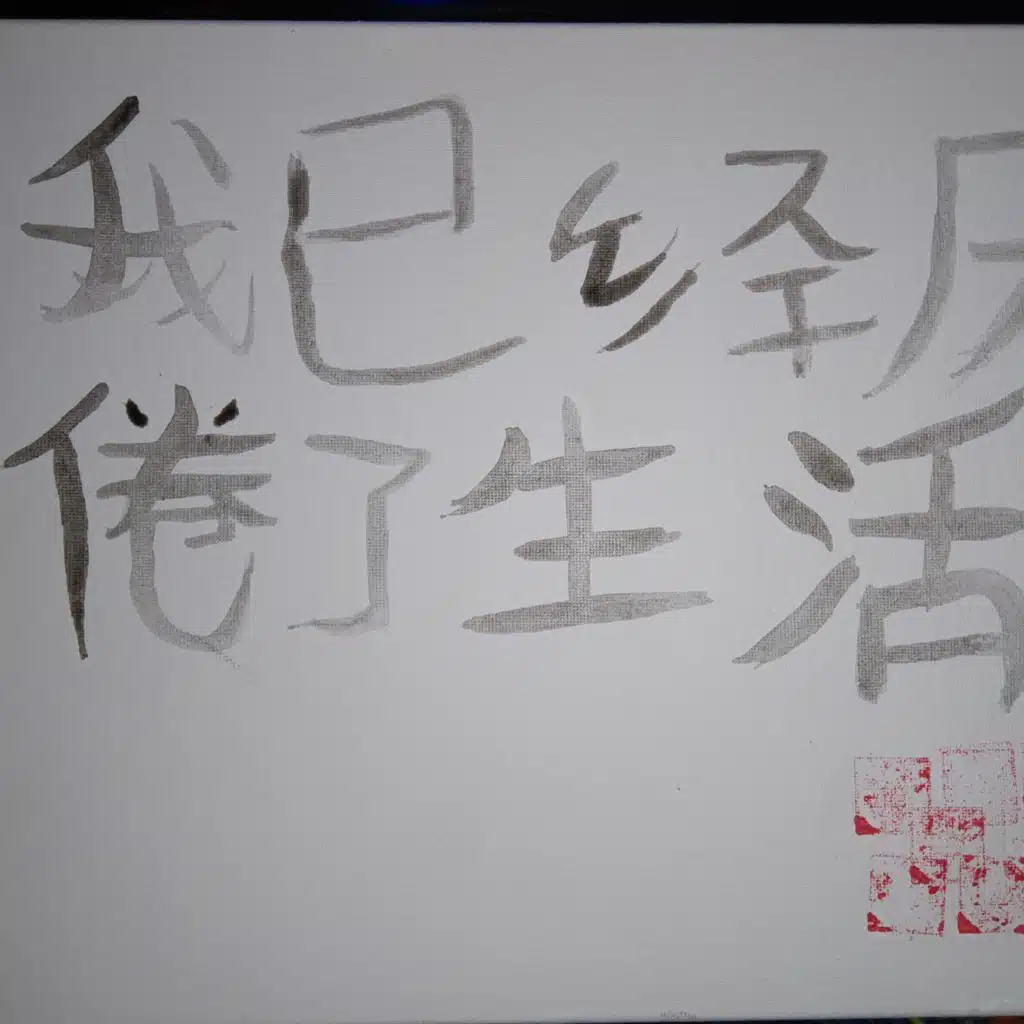 我已经历
倦了生活